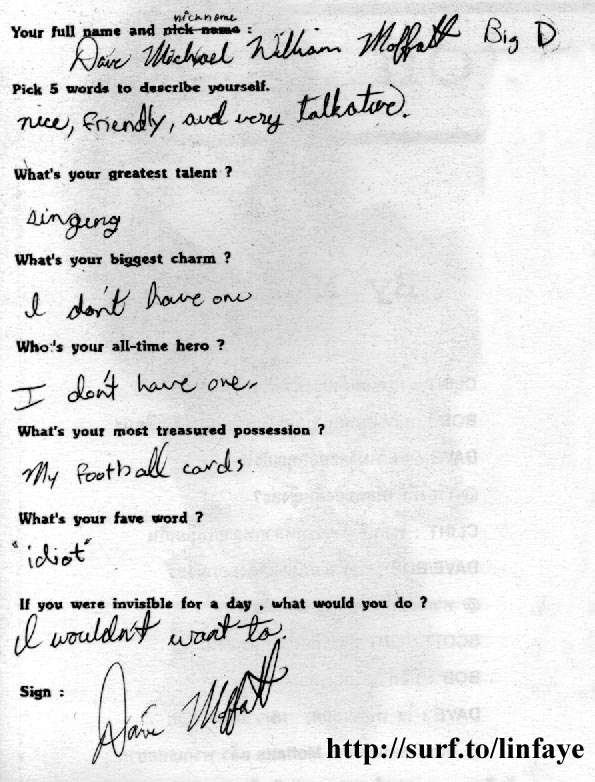 nickname
Your full name and nick name :
Dave Michael William Moffatt Big D
Pick 5 words to describe yourself.
nice, friendly, and very talkative.
What's your greatest talent ?
singing
What's your biggest charm ?
I don't have one
Who's your all-time hero ?
I don't have one.
What's your most treasured possession ?
My football cards.
What's your fave word ?
"idiot"
If you were invisible for a day , what would you do ?
I wouldn't want to.
Sign :
Dave Moffatt
http://surf.to/linfaye